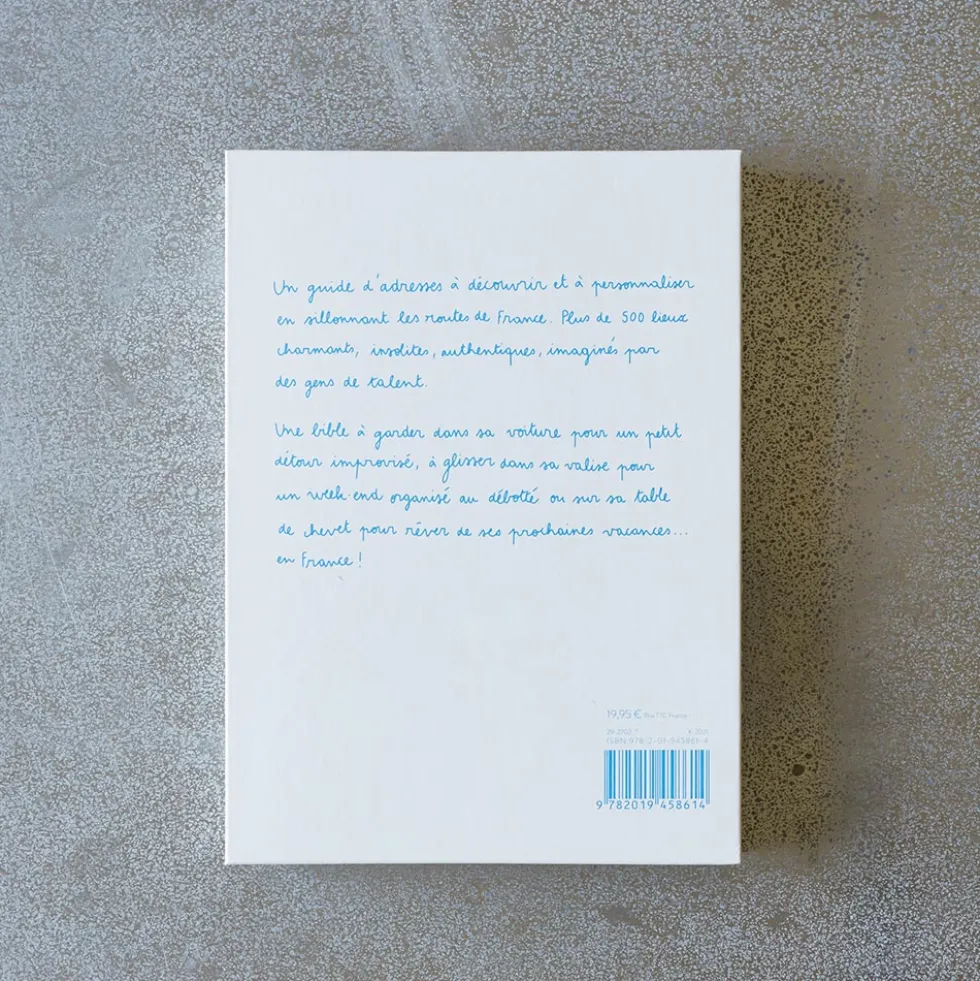 Un guide d'adresses à découvrir et à personnaliser
en sillonnant les routes de France. Plus de 500 lieux
charmants, insolites, authentiques, imaginés par
des gens de talent.
Une bible à garder dans sa voiture pour un petit
détour improvisé, à glisser dans sa valise pour
un week-end organisé au débotté ou sur sa table
de chevet pour rêver de ses prochaines vacances...
en France !
19,95 € Prix TTC France
ISBN: 978-2-01-945861-4
9 782019 458614